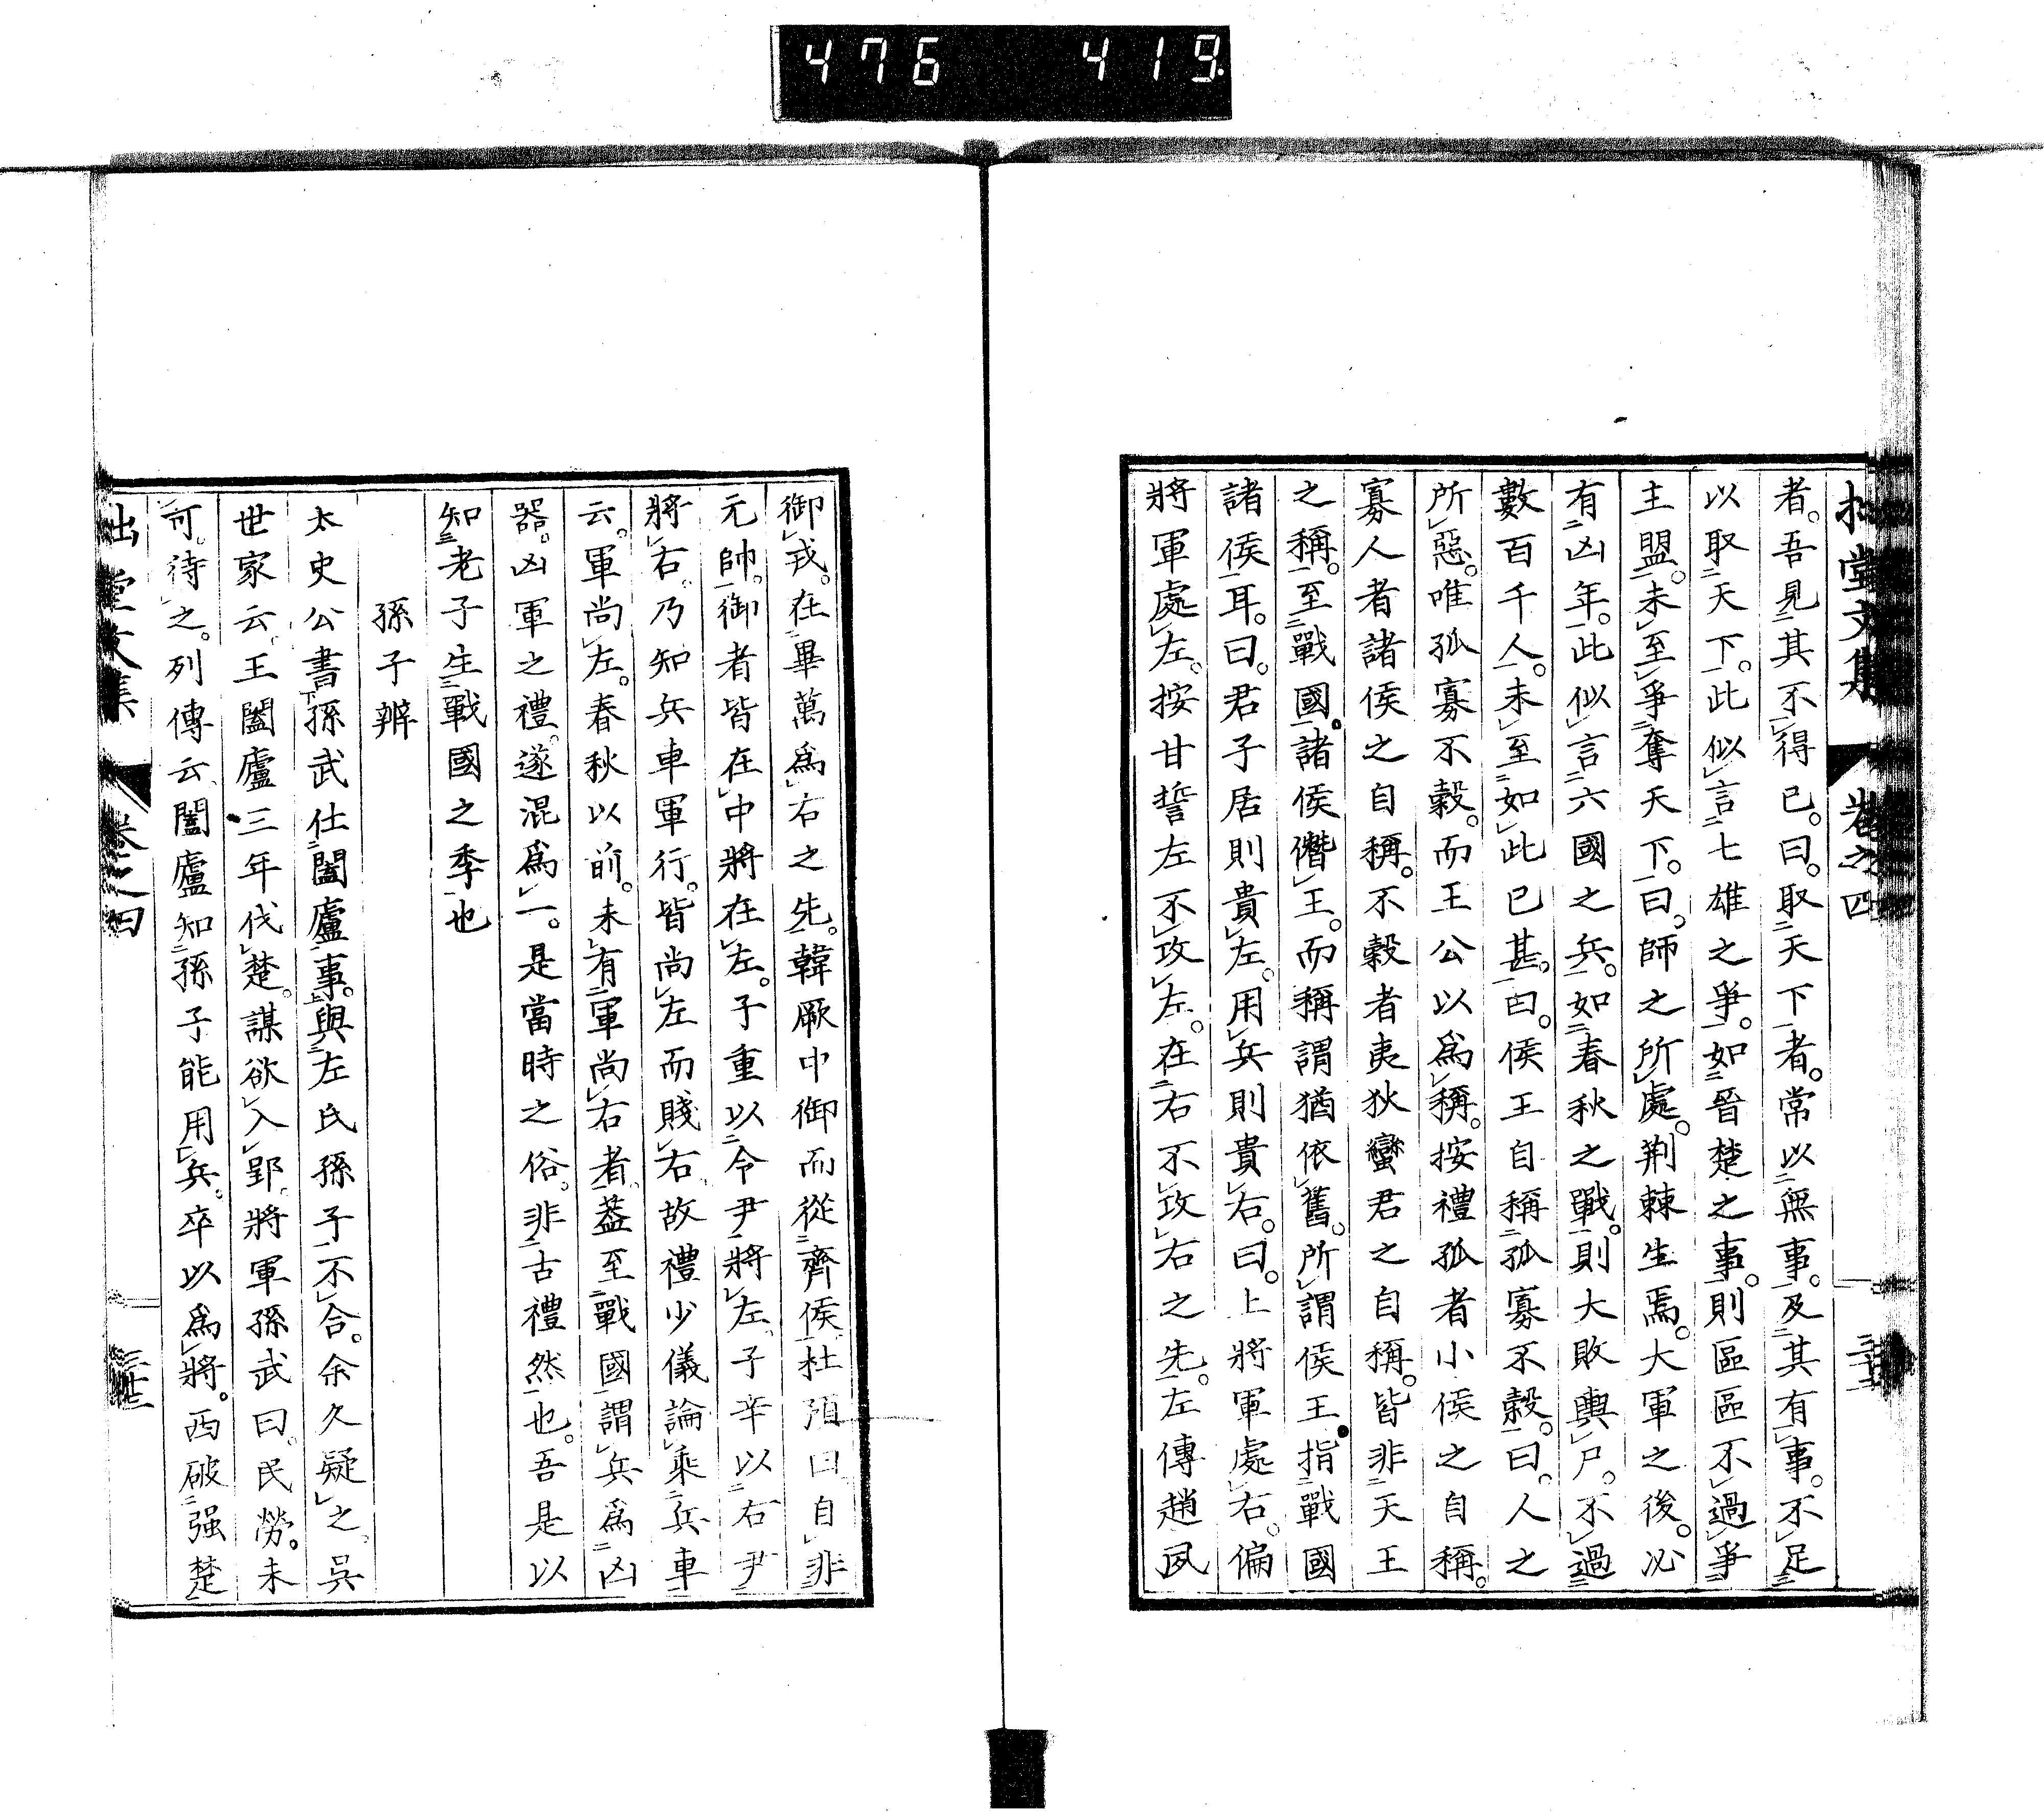 476 419
堂文集 卷之四
者。吾見其不得已。曰。取天下者。常以無事。及其有事。不足
以取天下。此似言七雄之爭。如晉楚之事。則區區不過爭
主盟。未至爭奪天下。曰。師之所處。荆棘生焉。大軍之後。必
有凶年。此似言六國之兵。如春秋之戰。則大敗輿尸。不過
數百千人。未至如此已甚。曰。侯王自稱孤寡不穀。曰。人之
所惡。唯孤寡不穀。而王公以爲稱。按禮孤者小侯之自稱。
寡人者諸侯之自稱。不穀者夷狄蠻君之自稱。皆非天王
之稱。至戰國。諸侯僭王。而稱謂猶依舊。所謂侯王。指戰國
諸侯耳。曰。君子居則貴左。用兵則貴右。曰。上將軍處右。偏
將軍處左。按甘誓左不攻左。在右不攻右之先。左傳趙夙
御戎。在畢萬爲右之先。韓厥中御而從齊侯。杜預曰。自非
元帥。御者皆在中將在左。子重以令尹將左。子辛以右尹
將右。乃知兵車軍行。皆尚左而賤右。故禮少儀論乘兵車
云。軍尚左。春秋以前。未有軍尚右者。蓋至戰國謂兵爲凶
器。凶軍之禮。遂混爲一。是當時之俗。非古禮然也。吾是以
知老子生戰國之季也
孫子辨
太史公書孫武仕闔廬事。與左氏孫子不合。余久疑之。吳
世家云。王闔廬三年伐楚。謀欲入郢。將軍孫武曰。民勞。未
可。待之。列傳云。闔廬知孫子能用兵。卒以爲將。西破强楚
堂文集 卷之四